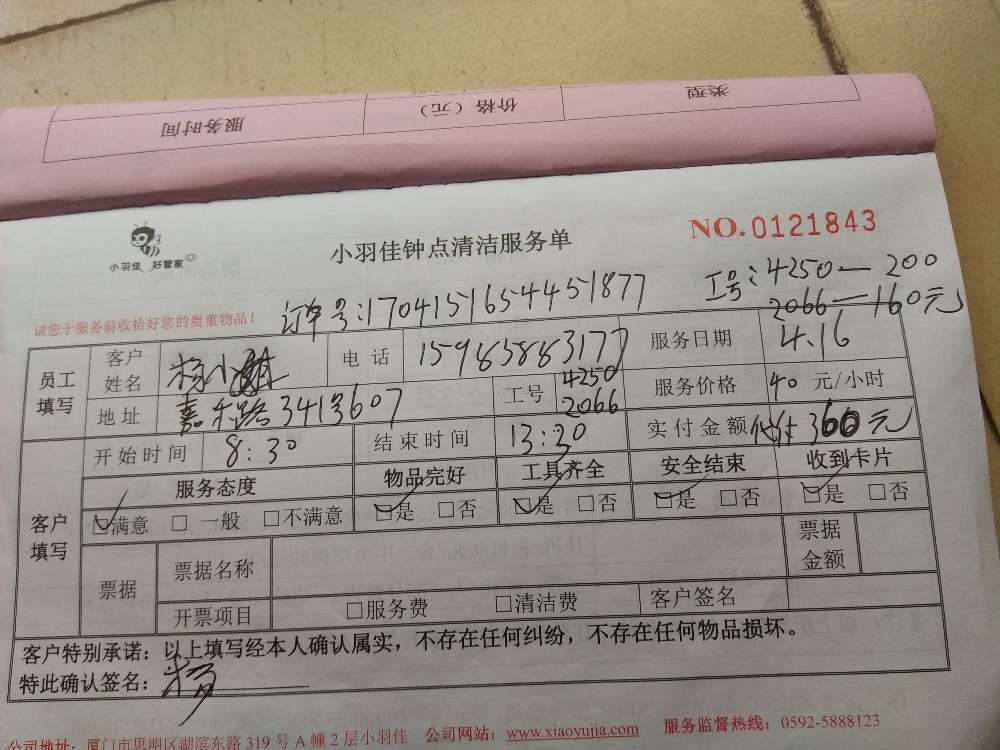 类型
价格（元）
服务时间
小羽佳 好管家
小羽佳钟点清洁服务单
NO.0121843
请您于服务前收拾好您的贵重物品！
订单号:17041516544451877
工号:4250—200
2066—160元
员工填写
客户姓名 杨小 电话 15985883177 服务日期 4.16
地址 嘉禾路341号607 工号 4250 2066 服务价格 40 元/小时
开始时间 8:30 结束时间 13:30 实付金额 360元
客户填写
服务态度 物品完好 工具齐全 安全结束 收到卡片
☑满意 □一般 □不满意 ☑是 □否 ☑是 □否 ☑是 □否 ☑是 □否
票据 票据名称 票据金额
开票项目 □服务费 □清洁费 客户签名
客户特别承诺：以上填写经本人确认属实，不存在任何纠纷，不存在任何物品损坏。
特此确认签名：杨
公司地址：厦门市思明区湖滨东路 319 号 A 幢 2 层小羽佳 公司网站：www.xiaoyujia.com 服务监督热线：0592-5888123